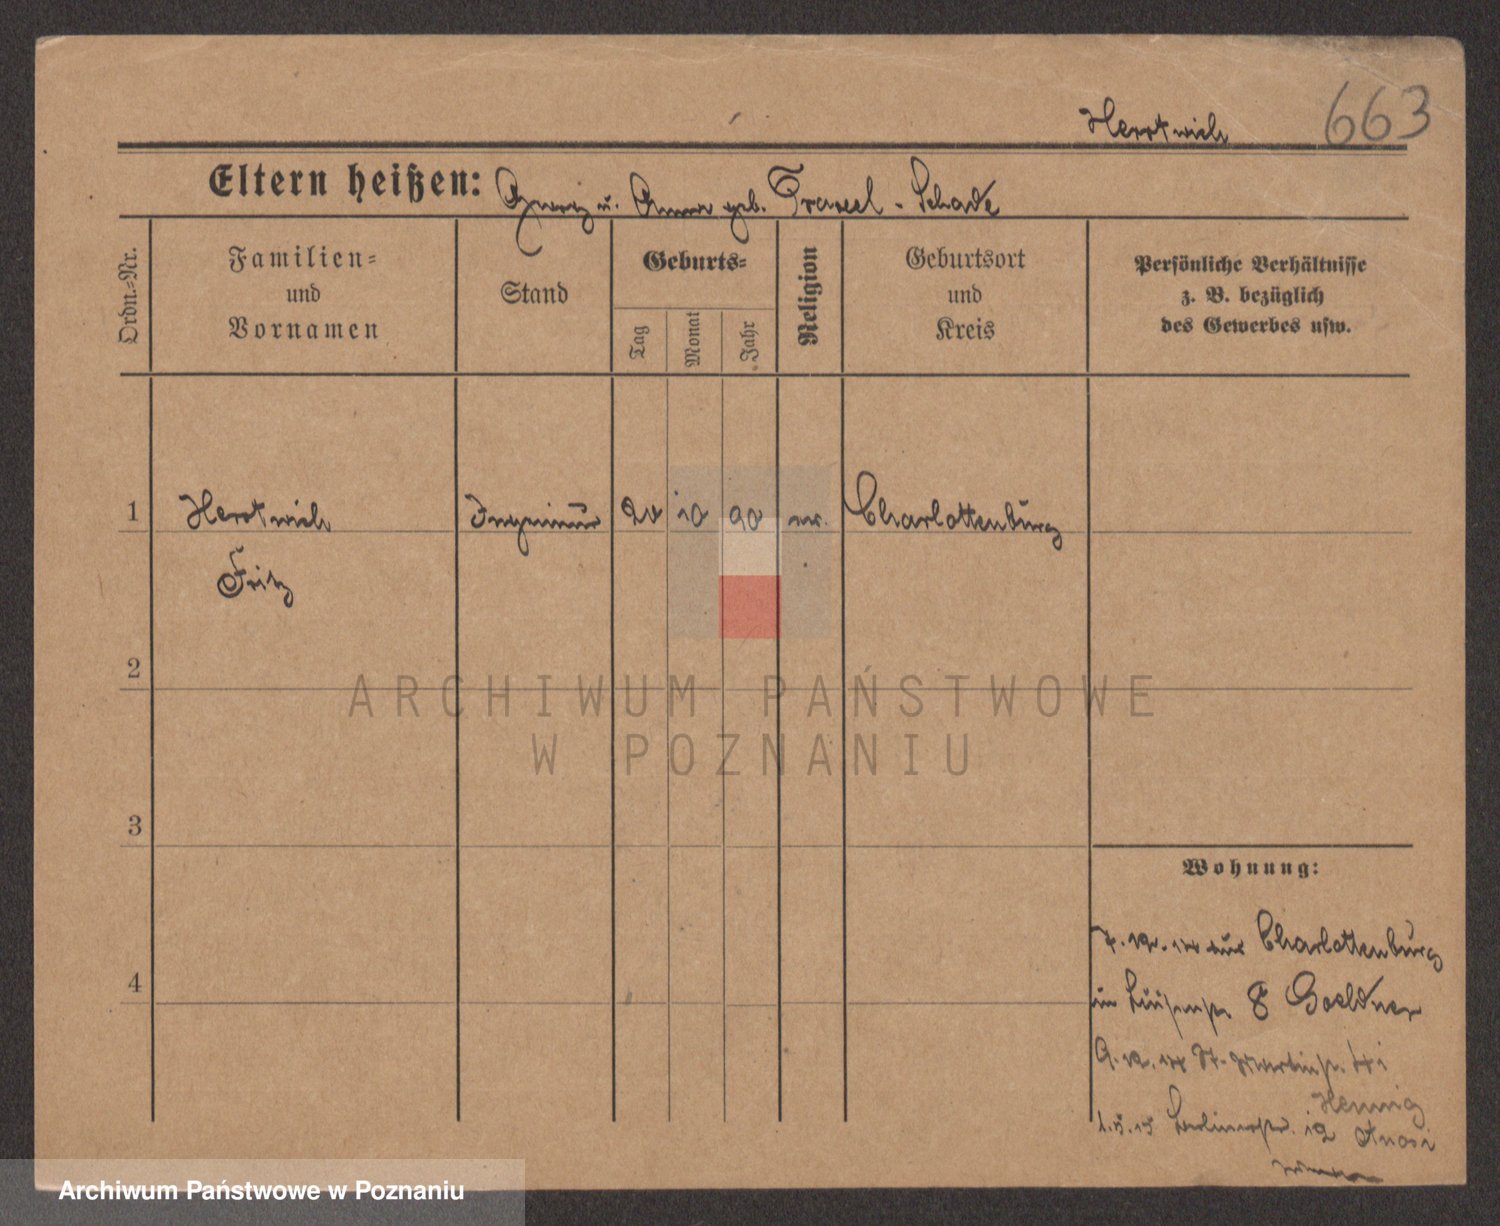 663
Herrtwich
Eltern heißen: Georg u. Anna geb. - Schade
Ordn.=Nr.
Familien=
und
Vornamen
Stand
Geburts=
Tag
Monat
Jahr
Religion
Geburtsort
und
Kreis
Persönliche Verhältnisse
z. B. bezüglich
des Gewerbes usw.
1 Herrtwich Ingenieur 24 10 90 ev. Charlottenburg
Fritz
2
3
4
Wohnung:
7.12.14 aus Charlottenburg
in Luisenstr 8 Goeldner
9.12.14 St. Martinstr. 41
Hennig
1.5.15 Berlinerstr. 12
ARCHIWUM PAŃSTWOWE
W POZNANIU
Archiwum Państwowe w Poznaniu